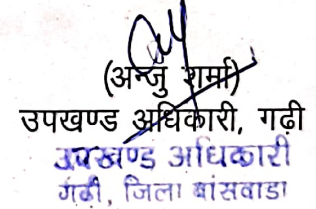 (अन्जु शर्मा)
उपखण्ड अधिकारी, गढ़ी
उपखण्ड अधिकारी
गढ़ी, जिला बांसवाडा